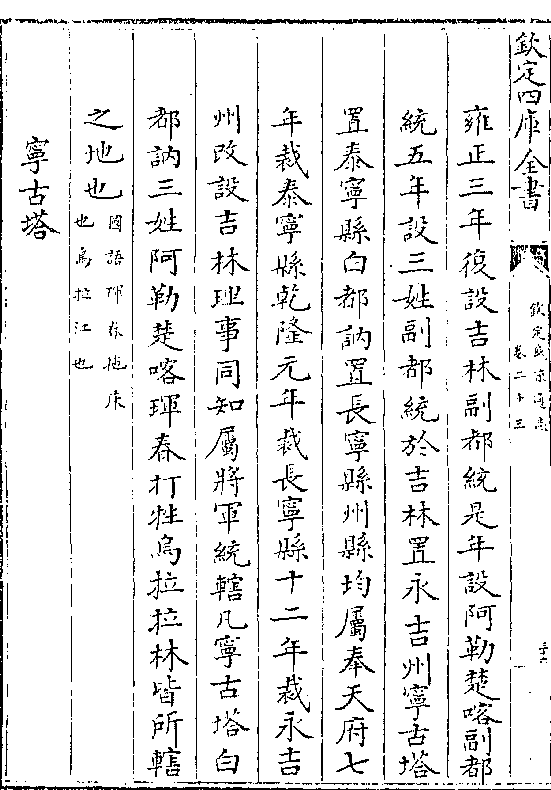 欽定四庫全書
欽定盛京通志
卷二十三
雍正三年復設吉林副都統是年設阿勒楚喀副都
統五年設三姓副都統於吉林置永吉州寧古塔
置泰寧縣白都訥置長寧縣州縣均屬奉天府七
年裁泰寧縣乾隆元年裁長寧縣十二年裁永吉
州改設吉林理事同知屬將軍統轄凡寧古塔白
都訥三姓阿勒楚喀琿春打牲烏拉拉林皆所轄
之地也
國語琿春拖床
也烏拉江也
寧古塔